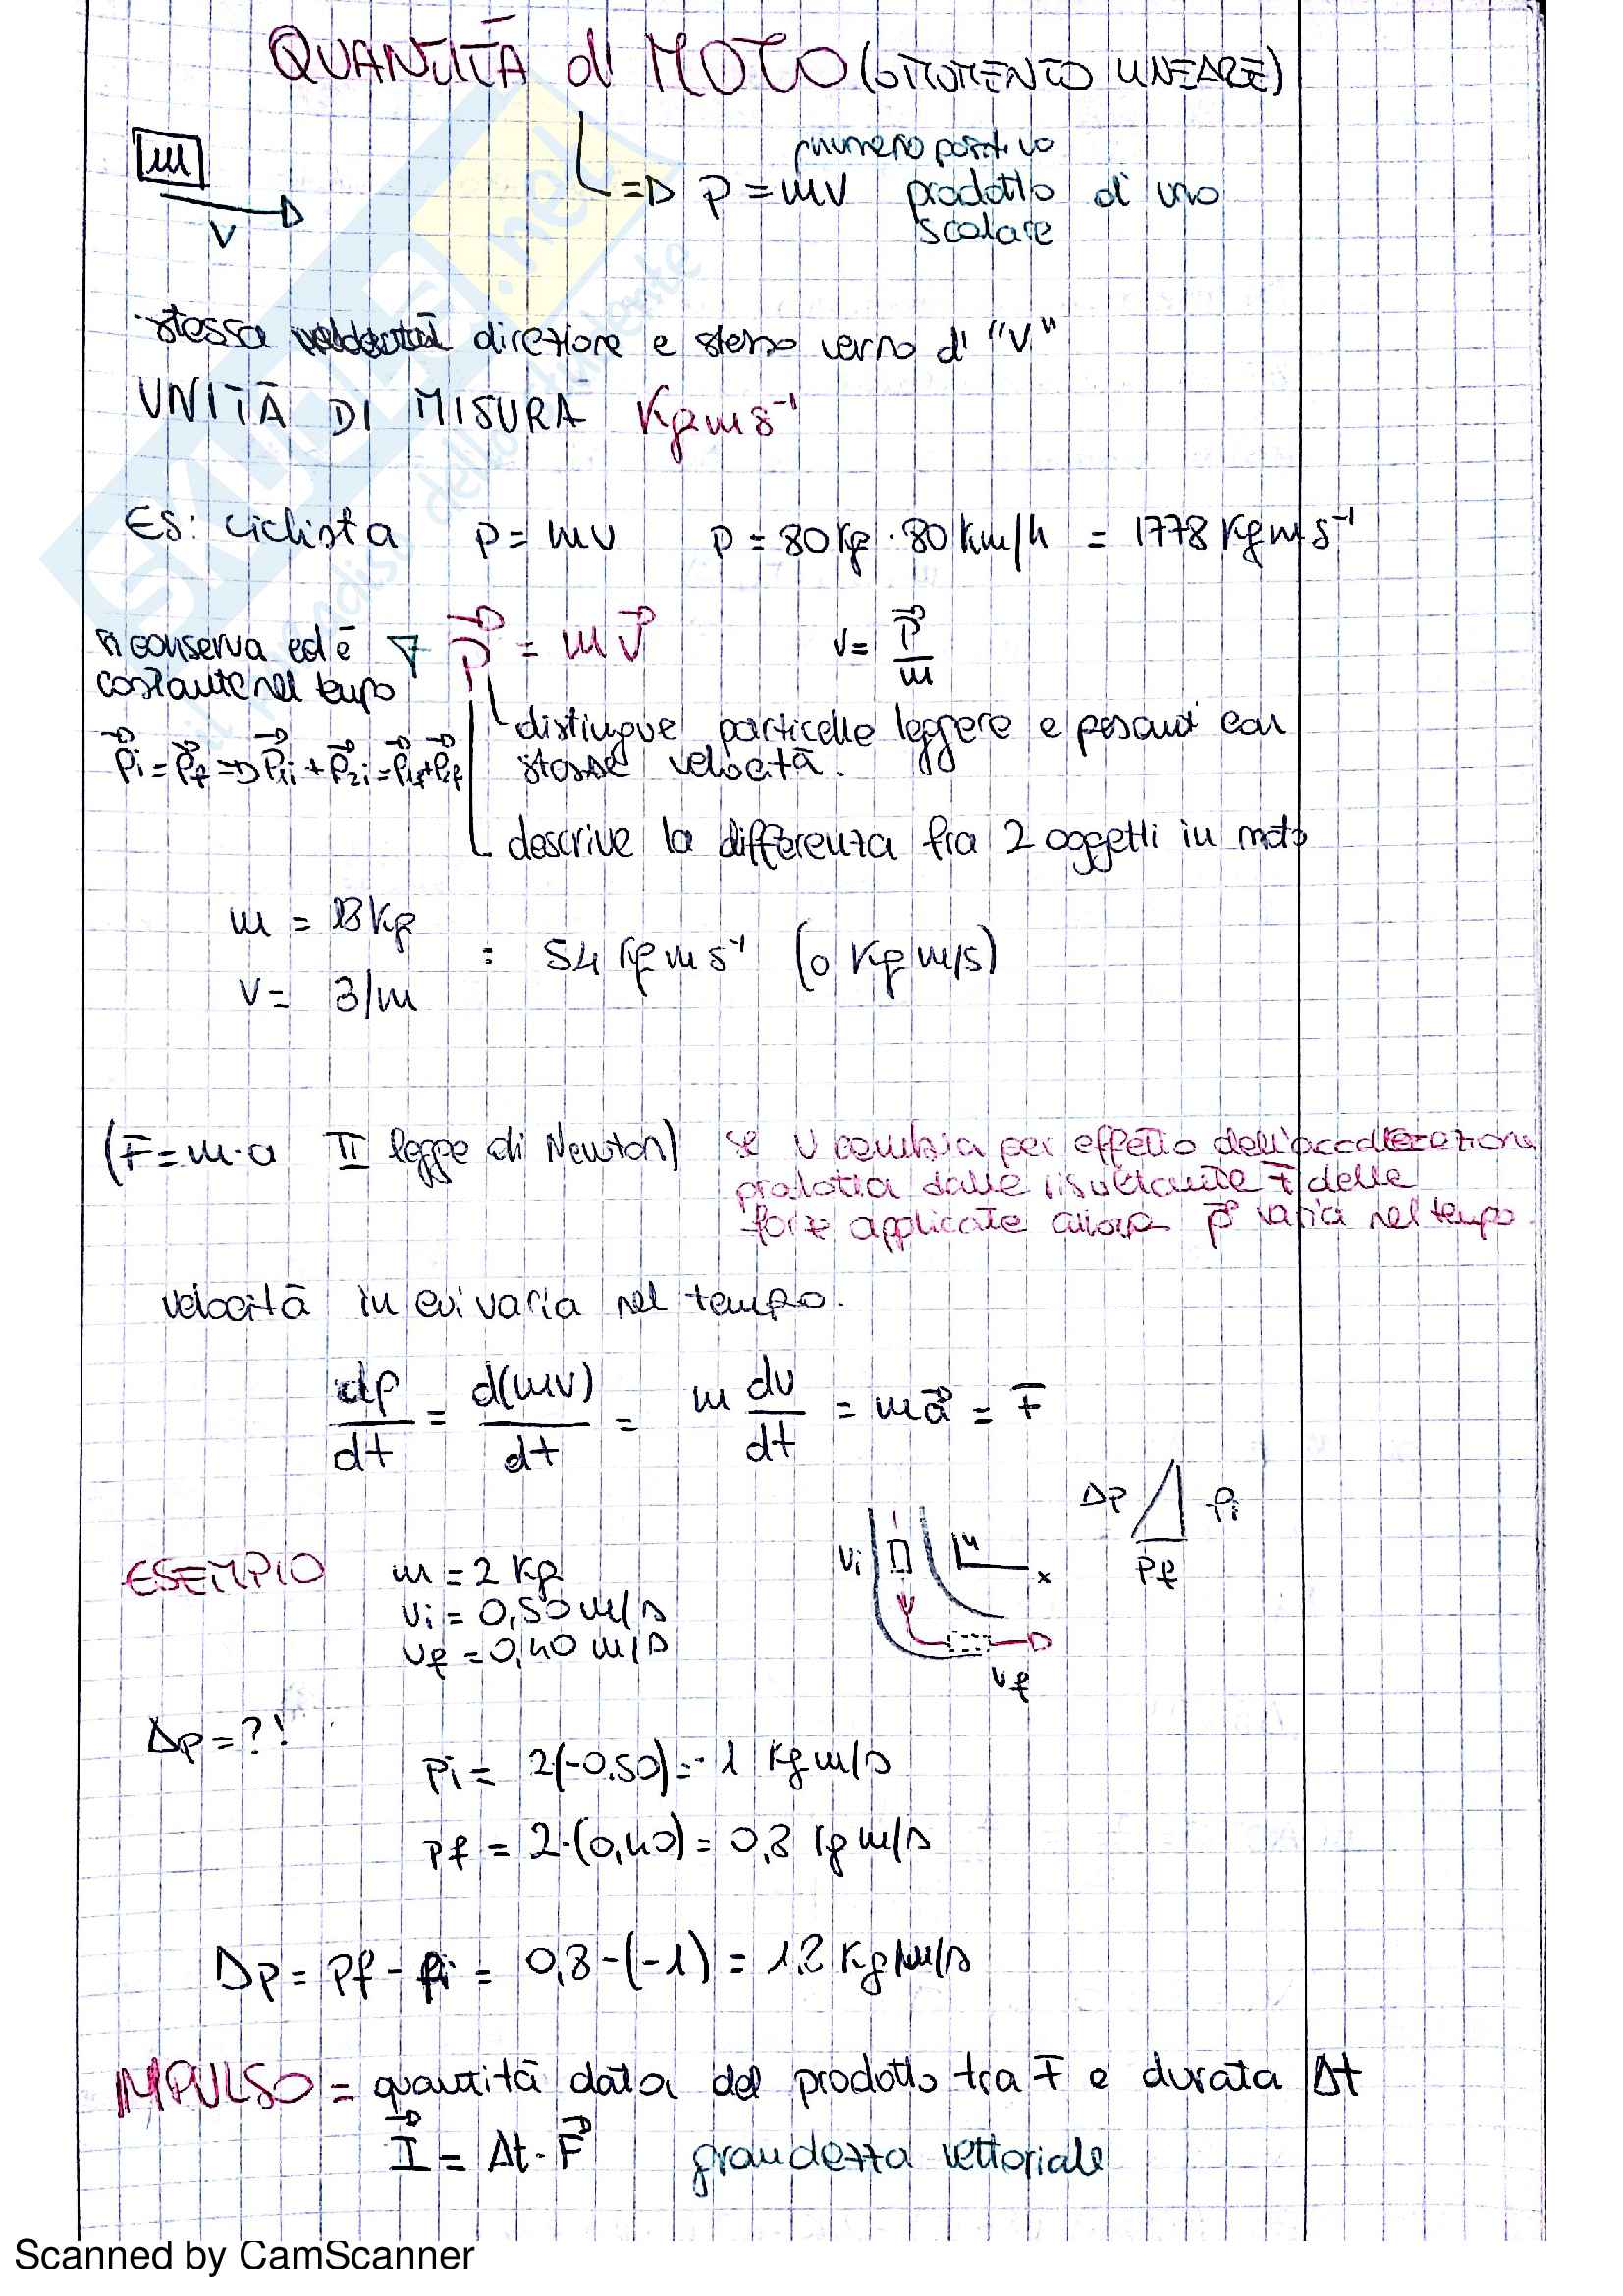 QUANTITÀ di MOTO (o MOMENTO LINEARE)
m
V
numero positivo
=> p = mv prodotto di uno
scalare
stessa direzione e stesso verso di "V"
UNITÀ DI MISURA Kgms⁻¹
ES: ciclista p = mv p = 80 Kg · 80 km/h = 1778 Kg m s⁻¹
si conserva ed è p⃗ = m v⃗ v = p⃗/m
costante nel tempo
distingue particelle leggere e pesanti con
p⃗i = p⃗f => p⃗1i + p⃗2i = p⃗1f + p⃗2f stesse velocità.
descrive la differenza fra 2 oggetti in moto
m = 18 Kg
= 54 Kg m s⁻¹ (o Kg m/s)
v = 3/m
(F = m·a II legge di Newton) se v cambia per effetto dell'accelerazione
prodotta dalle risultante F delle
forze applicate allora p⃗ varia nel tempo.
velocità in cui varia nel tempo.
dp/dt = d(mv)/dt = m dv/dt = m a⃗ = F
Δp pi
pf
ESEMPIO m = 2 Kg
vi y x
vi = 0,50 m/s
vf = 0,40 m/s
vf
Δp = ?!
pi = 2(-0.50) = -1 Kg m/s
pf = 2·(0,40) = 0,8 Kg m/s
Δp = pf - pi = 0,8 - (-1) = 1,8 Kg m/s
IMPULSO = quantità data del prodotto tra F e durata Δt
I⃗ = Δt · F⃗ grandezza vettoriale
SKUOLA.net
Scanned by CamScanner